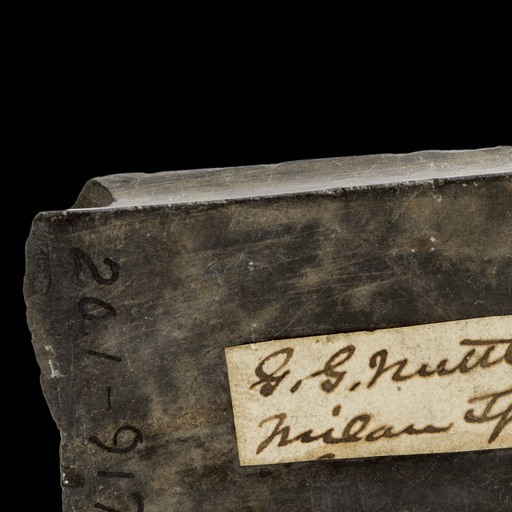 201-917
G. G. Nutt
Milan Tp